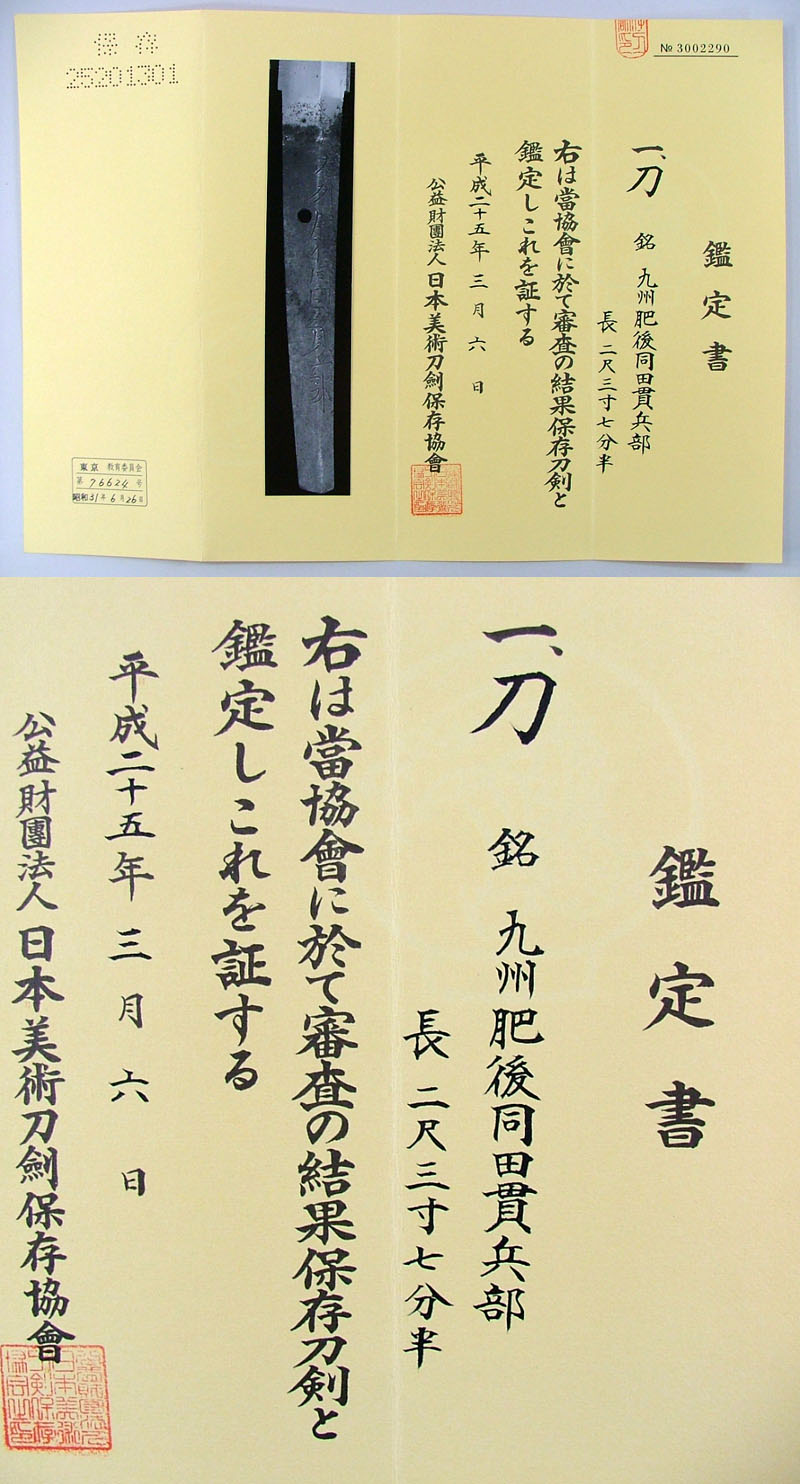 № 3002290
鑑定書
一、刀 銘 九州肥後同田貫兵部
長 二尺三寸七分半
右は當協會に於て審査の結果保存刀剣と
鑑定しこれを証する
平成二十五年 三月 六日
公益財團法人 日本美術刀劍保存協會
保存
25201301
東京 教育委員会
第 76624 号
昭和31年6月26日
鑑定書
一、刀 銘 九州肥後同田貫兵部
長 二尺三寸七分半
右は當協會に於て審査の結果保存刀剣と
鑑定しこれを証する
平成二十五年 三月 六日
公益財團法人 日本美術刀劍保存協會